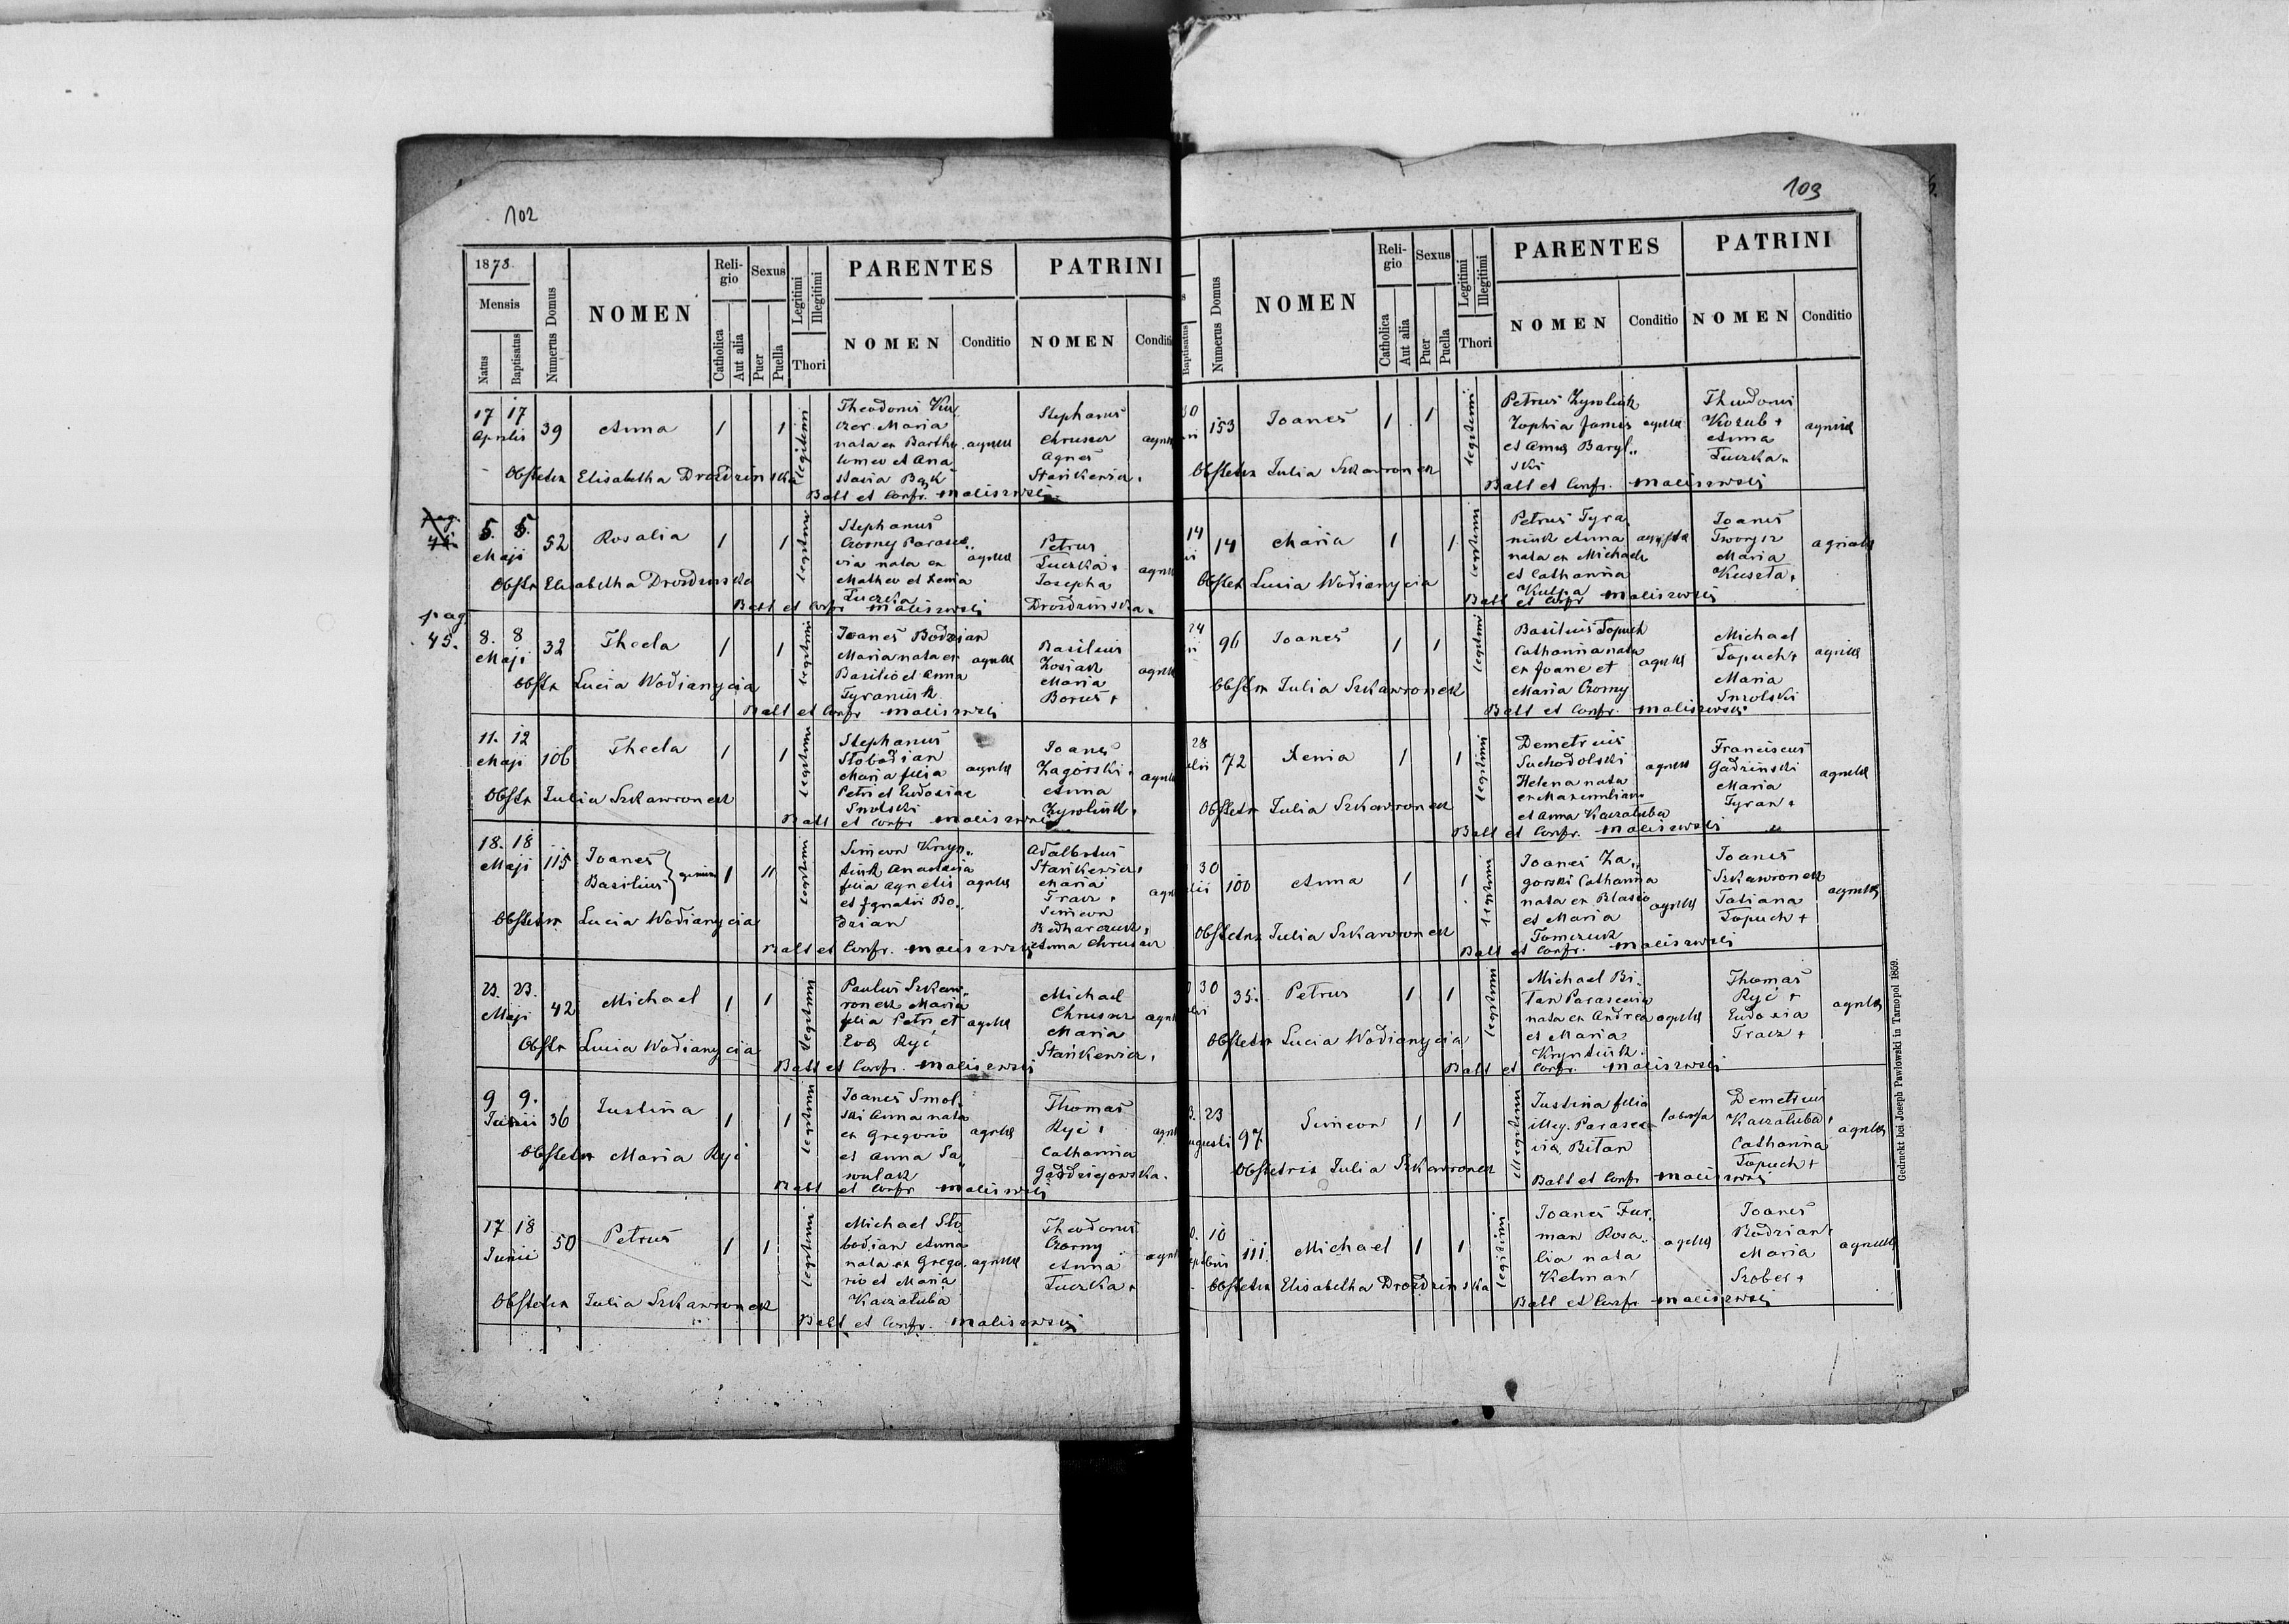 102
1878.
Mensis
Natus
Baptisatus
Numerus Domus
NOMEN
Reli-
gio
Catholica
Aut alia
Sexus
Puer
Puella
Legitimi
Illegitimi
Thori
PARENTES
NOMEN
Conditio
PATRINI
NOMEN
Conditi
17 17
Aprilis
39
Anna
1
1
Legitimi
Theodorus Ku
czer Maria
nata ex Bartho
lomeo et Ana
stasia Bąk
agricolae
Stephanus
Chruszcz
Agnes
Stankewicz.
Obstetrix Elisabetha Drozdzinska
Bapt et Confr. Maliszewski
5. 5.
Maji
52
Rosalia
1
1
legitimi
Stephanus
Czorny Parasce
via nata ex
Matheo et Xenia
Łuczka
Petrus
Łuczka +
Josepha
Drozdzinska.
Obstr Elisabetha Drozdzinska
Bapt et Confr Maliszewski
pag
45.
8. 8
Maji
32
Thecla
1
1
legitimi
Joanes Bodzian
Maria nata ex
Basilio et Anna
Tyraniuk
Basilius
Zosiak
Maria
Borus +
Obstr Lucia Wodianycia
Bapt et Confr Maliszewski
11. 12
Maji
106
Thecla
1
1
legitimi
Stephanus
Słobodian
Maria filia
Petri et Eudoxiae
Smolski
Joanes
Zagorski.
Anna
Zywoliuk.
Obstr Julia Szkawronek
Bapt et Confr Maliszewski
18. 18
Maji
115
Joanes
Basilius
gemini
1
11
legitimi
Simeon Kryn
tiuk Anastasia
filia Agnetis
et Ignatii Bo
dzian
Adalbertus
Stankewicz,
Maria
Tracz +
Simeon
Bodnarczuk,
Anna Chruszcz
Obstetrix Lucia Wodianycia
Bapt et Confr. Maliszewski
23. 23.
Maji
42
Michael
1
1
legitimi
Paulus Szkaw
ronek Maria
filia Petri et
Eva Ryć
Michael
Chruszcz
Maria
Stankewicz,
Obstr Lucia Wodianycia
Bapt et Confr. Maliszewski
9 9.
Junii
36
Justina
1
1
legitimi
Joanes Smol
ski Anna nata
ex Gregorio
et Anna Sa
wulak
Thomas
Ryć +
Catharina
Gadziejowska.
Obstetrix Maria Ryć
Bapt et Confr Maliszewski
17 18
Junii
50
Petrus
1
1
legitimi
Michael Sło
bodian Anna
nata ex Grego
rio et Maria
Kaczałuba
Theodorus
Czorny
Anna
Łuczka +
Obstetrix Julia Szkawronek
Bapt et Confr. Maliszewski
103
Baptisatus
Numerus Domus
NOMEN
Reli-
gio
Catholica
Aut alia
Sexus
Puer
Puella
Legitimi
Illegitimi
Thori
PARENTES
NOMEN
Conditio
PATRINI
NOMEN
Conditio
30
153
Joanes
1
1
legitimi
Petrus Zywoliuk
Zophia Joanis
et Anna Baryl
ski
Theodorus
Kozub +
Anna
Łuczka
Obstetrix Julia Szkawronek
Bapt et Confr. Maliszewski
14
14
Maria
1
1
legitimi
Petrus Tyra
niuk Anna
nata ex Michaele
et Catharina
Kulpa
Joanes
Tworyz
Maria
Kuszta +
Obstetr Lucia Wodianycia
Bapt et Confr Maliszewski
24
96
Joanes
1
1
legitimi
Basilius Łopuch
Catharina nata
ex Joane et
Maria Czorny
Michael
Łopuch +
Maria
Smolski
Obstetr Julia Szkawronek
Bapt et Confr. Maliszewski
28
72
Xenia
1
1
legitimi
Demetrius
Suchodolski
Helena nata
ex Maximiliano
et Anna Kaczałuba
Franciscus
Gadzinski
Maria
Tyran +
Obstetr Julia Szkawronek
Bapt et Confr. Maliszewski
30
100
Anna
1
1
legitimi
Joanes Za
gorski Catharina
nata ex Blasio
et Maria
Tomczuk
Joanes
Szkawronek
Tatiana
Łopuch +
Obstetrix Julia Szkawronek
Bapt et Confr. Maliszewski
30
35.
Petrus
1
1
legitimi
Michael Bi
tan Parascevia
nata ex Andrea
et Maria
Kryntiuk
Thomas
Ryć +
Eudoxia
Tracz +
Obstetr Lucia Wodianycia
Bapt et Confr. Maliszewski
23
97
Simeon
1
1
illegitimi
Justina filia
illeg. Parasce
via Bitan
Demetrius
Kaczałuba,
Catharina
Łopuch +
Obstetrix Julia Szkawronek
Bapt et Confr Maliszewski
10
111
Michael
1
1
legitimi
Joanes Fur
man Rosa
lia nata
Kelman
Joanes
Bodzian,
Maria
Szober +
Obstetrix Elisabetha Drozdzinska
Bapt et Confr Maliszewski
Gedruckt bei Joseph Pawlowski in Tarnopol 1859.